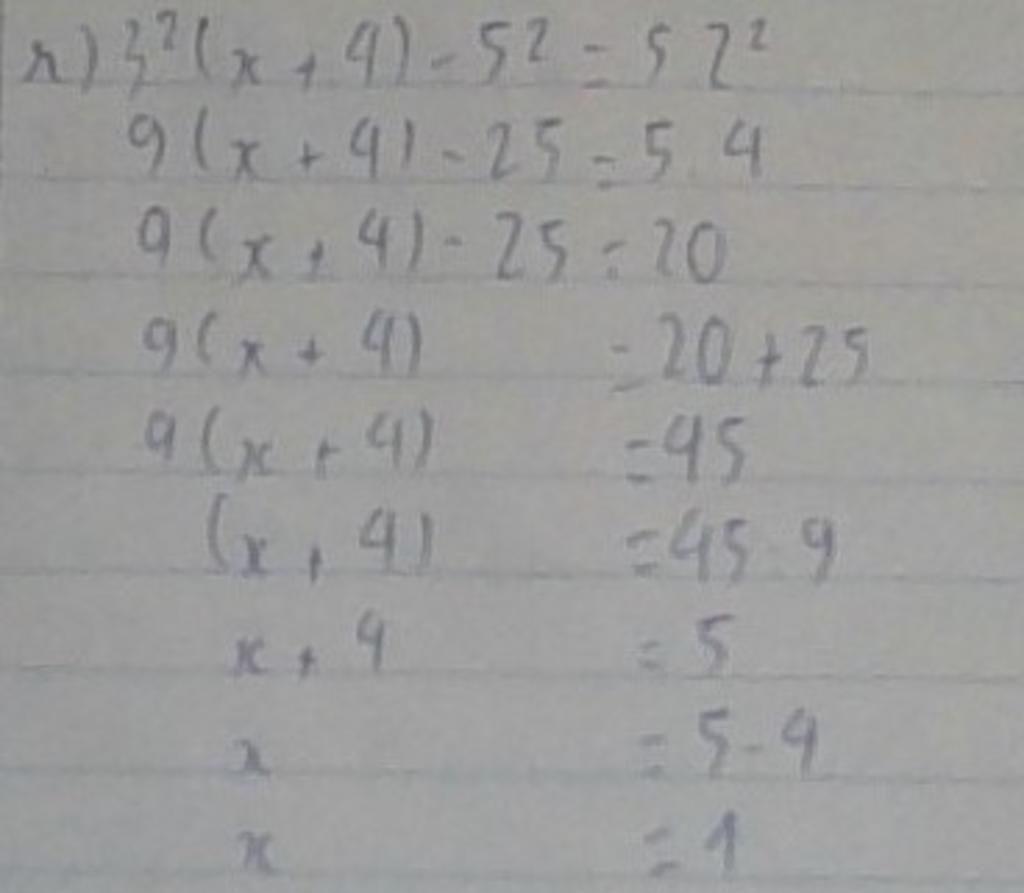 r) 3²(x + 4) - 5² = 5 2²
9(x + 4) - 25 = 5 4
9(x + 4) - 25 = 20
9(x + 4) = 20 + 25
9(x + 4) = 45
(x + 4) = 45 9
x + 4 = 5
x = 5 - 4
x = 1